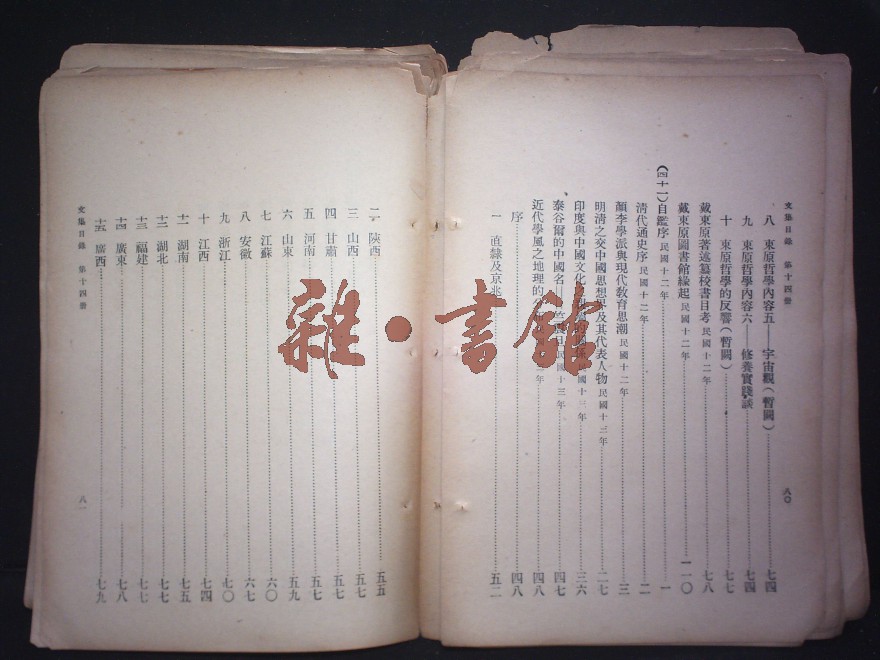 文集目錄 第十四册
八 東原哲學內容五——宇宙觀(暫闕)……七四
九 東原哲學內容六——修養實踐談……七四
十 東原哲學的反響(暫闕)……七七
戴東原著述纂校書目考民國十二年……七八
戴東原圖書館緣起民國十二年……一一〇
(四十一)自鑑序民國十二年……一
清代通史序民國十二年……二
顏李學派與現代敎育思潮民國十二年……三
明清之交中國思想界及其代表人物民國十三年……二七
印度與中國文化之親屬的關係民國十三年……三六
泰谷爾的中國名——竺震旦民國十三年……四七
近代學風之地理的年……四八
序……四八
一 直隸及京兆……五二
八〇
文集目錄 第十四册
二 陝西……五五
三 山西……五七
四 甘肅……五七
五 河南……五七
六 山東……五九
七 江蘇……六〇
八 安徽……六七
九 浙江……七〇
十 江西……七四
十一 湖南……七五
十二 湖北……七七
十三 福建……七七
十四 廣東……七八
十五 廣西……七九
八一
雜·書館